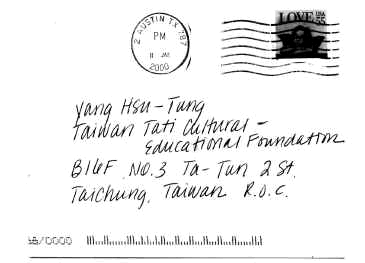 AUSTIN TX 787
PM
8 JAN
2000
LOVE USA 55
Yang Hsu-Tung
Taiwan Tati Cultural -
Educational Foundation
B16F NO.3 Ta-Tun 2 St.
Taichung, Taiwan R.O.C.
/0000